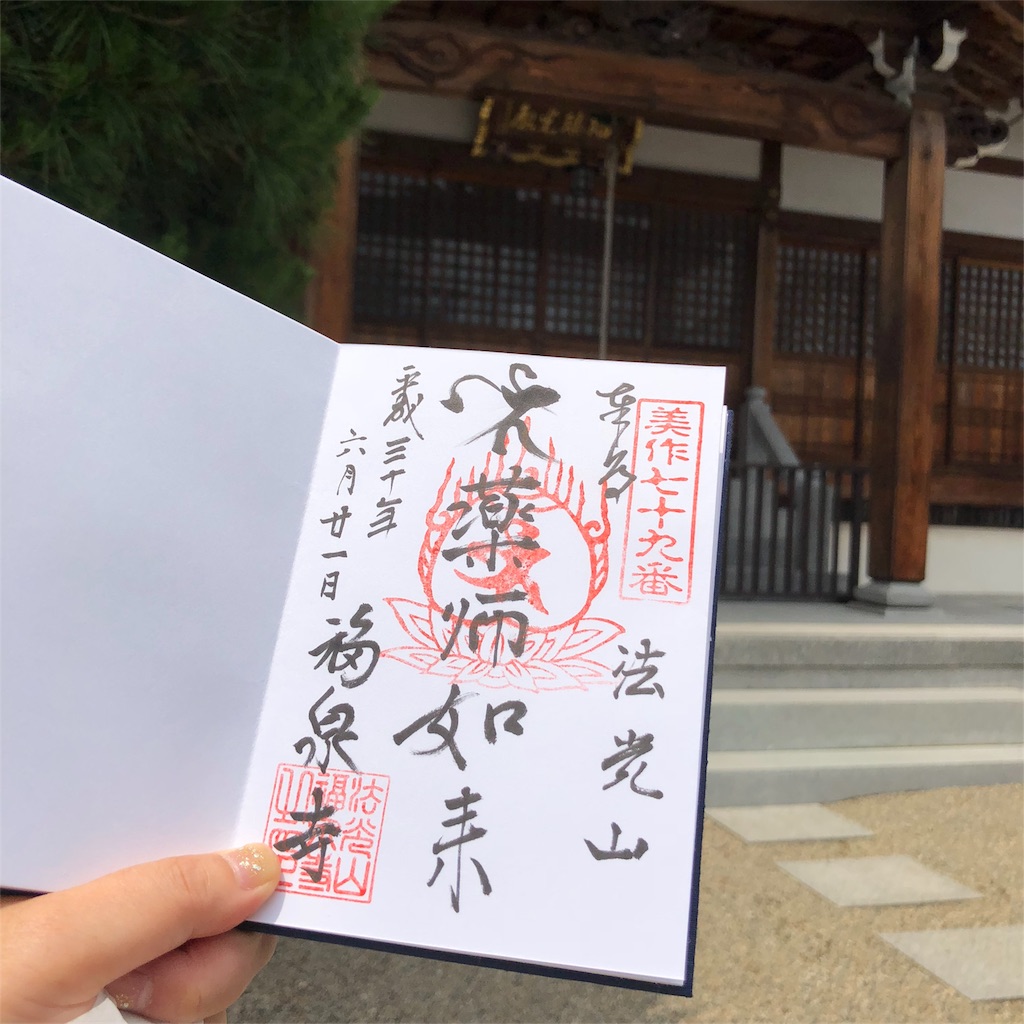 美作七十九番
奉拝
法光山
薬師如来
平成三十年
六月廿一日
福泉寺